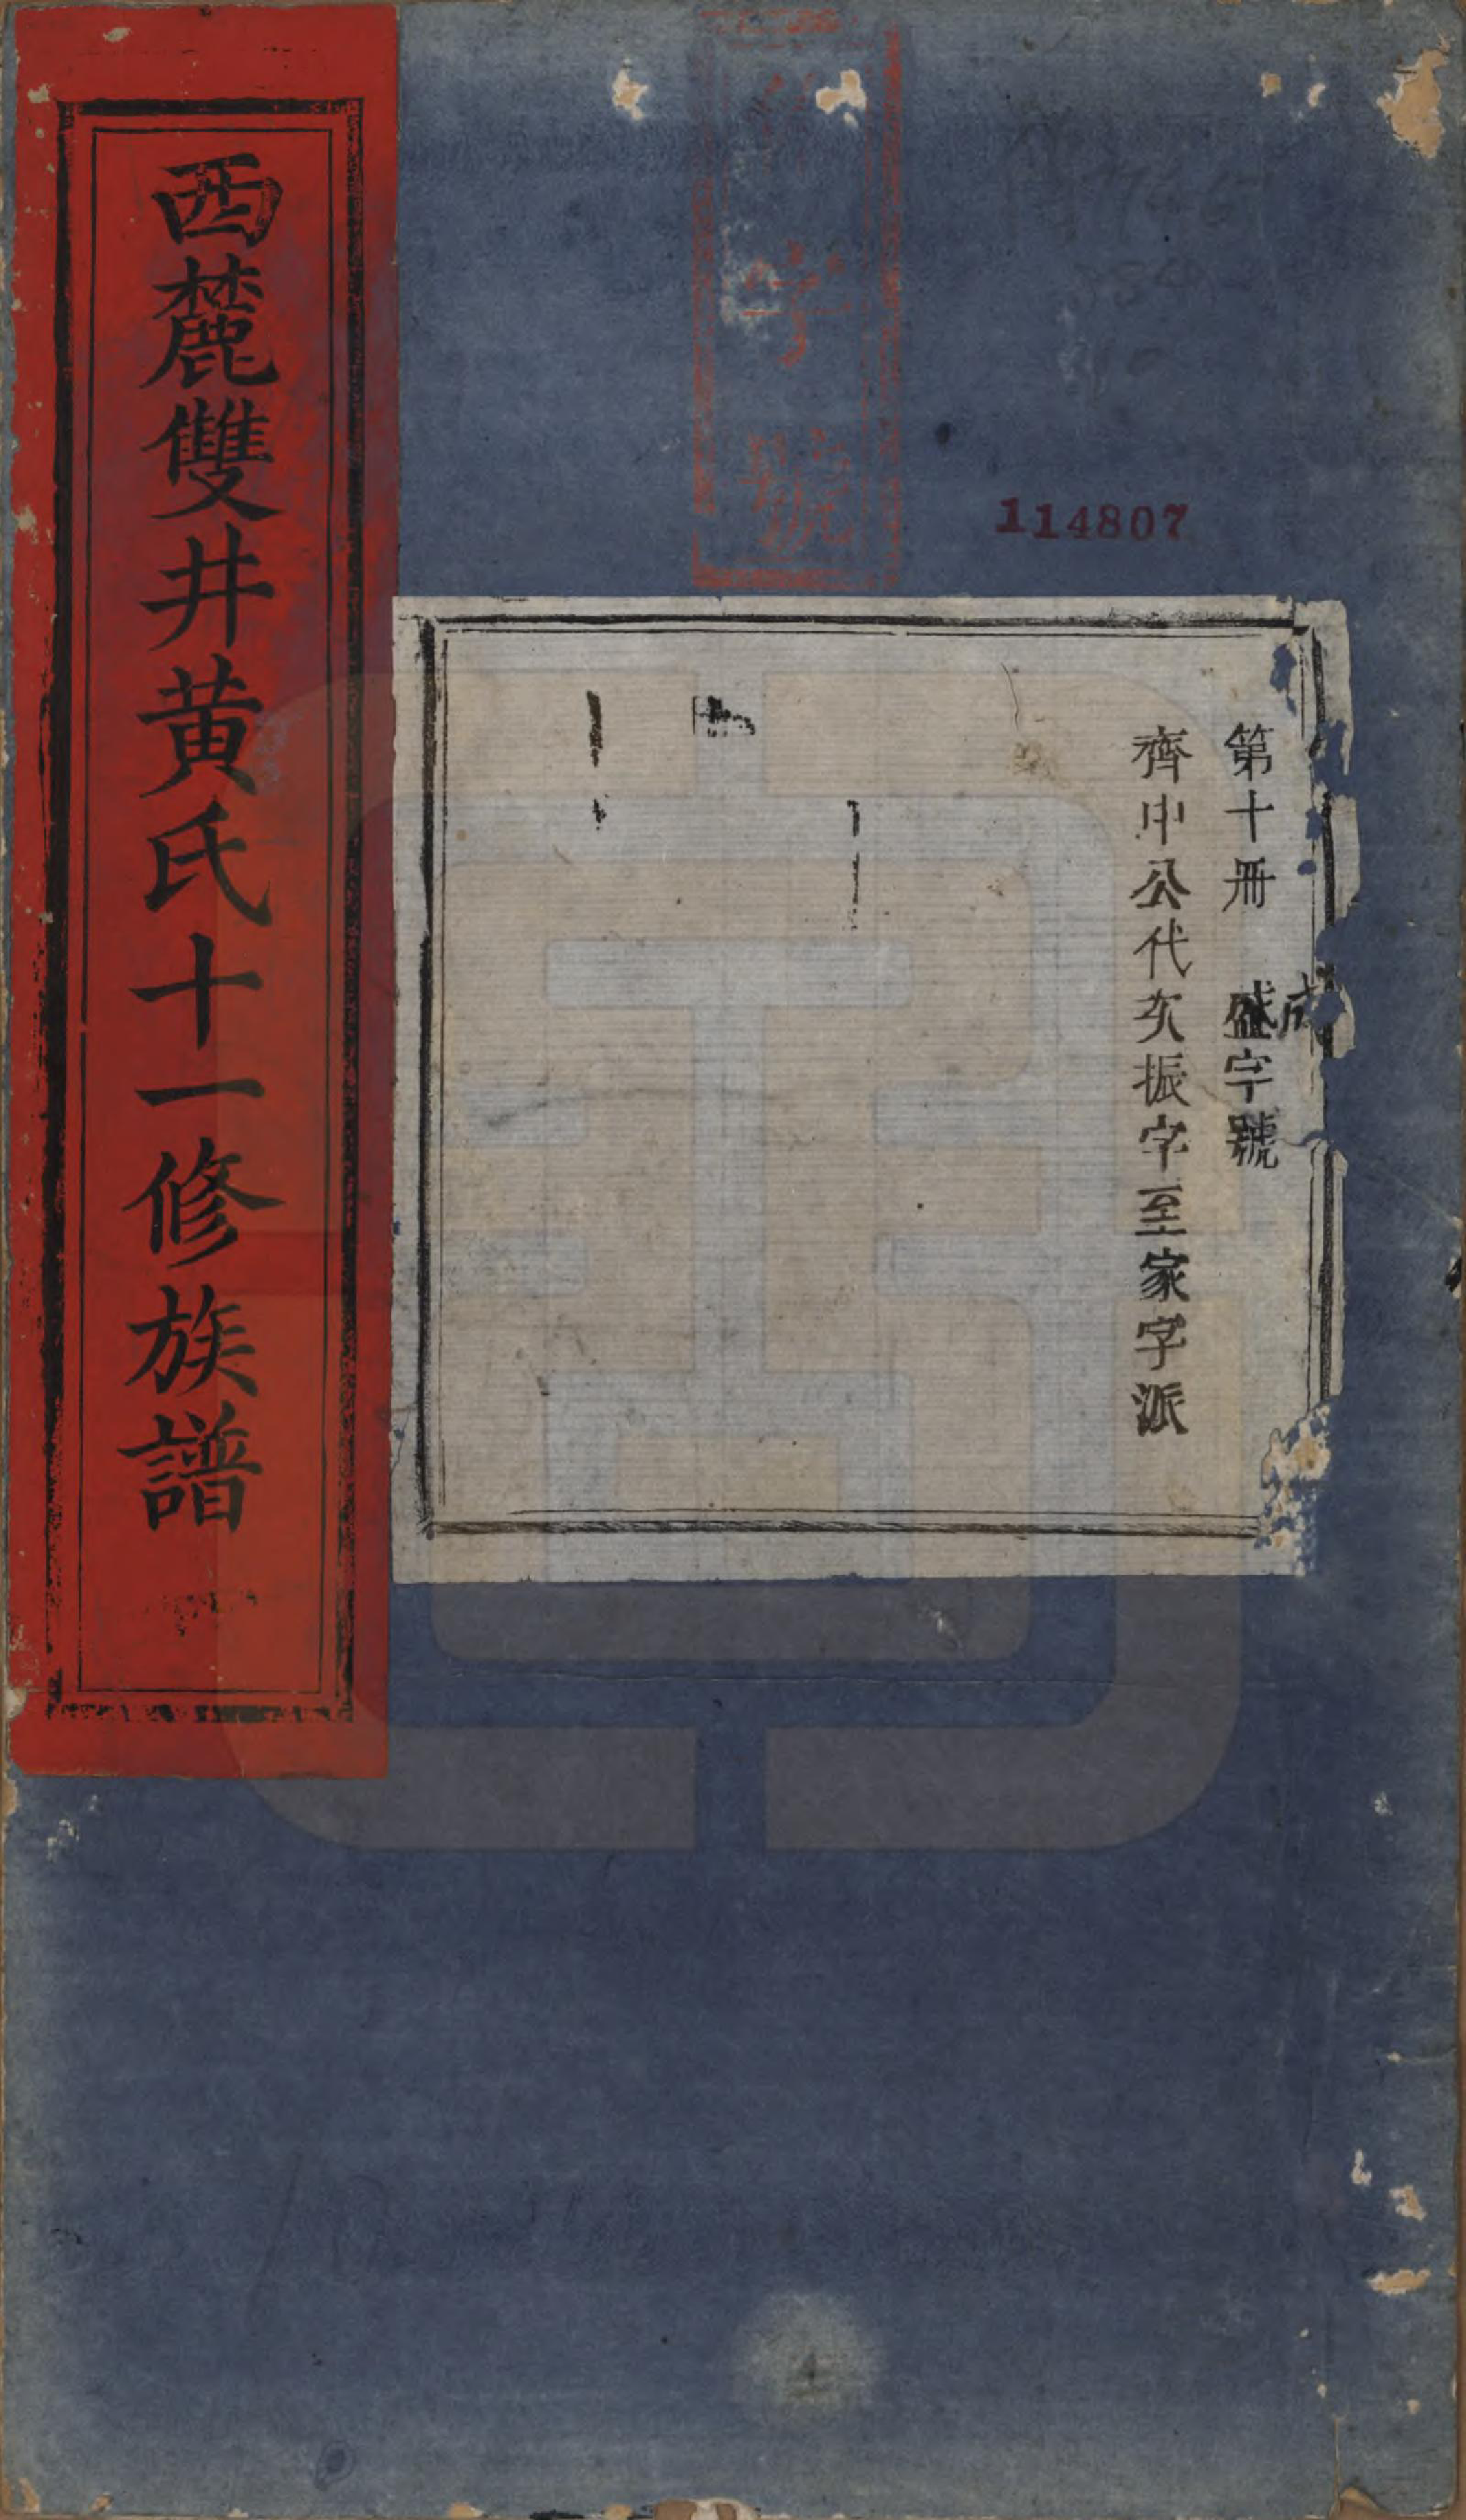 西麓雙井黄氏十一修族譜
字
號
114807
第十冊　盛字號
齊申公代欠振字至家字派